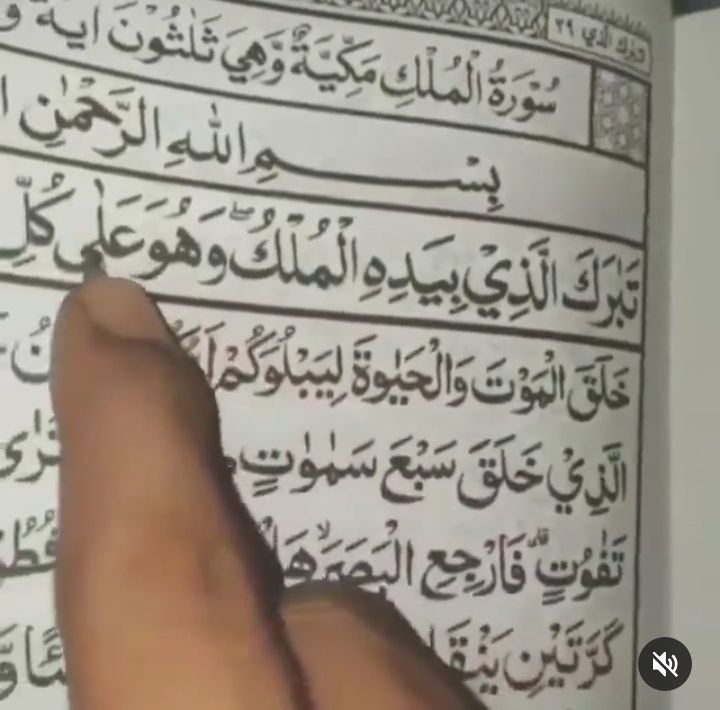 تبرك الذي ٢٩
سُوْرَةُ الْمُلْكِ مَكِّيَّةٌ وَّهِيَ ثَلٰثُوْنَ اٰيَةً وَّ
بِسْمِ اللّٰهِ الرَّحْمٰنِ
تَبٰرَكَ الَّذِيْ بِيَدِهِ الْمُلْكُ ۖ وَهُوَ عَلٰى كُلِّ
خَلَقَ الْمَوْتَ وَالْحَيٰوةَ لِيَبْلُوَكُمْ
الَّذِيْ خَلَقَ سَبْعَ سَمٰوٰتٍ
تَفٰوُتٍ ؕ فَارْجِعِ الْبَصَرَ ۙ هَلْ
كَرَّتَيْنِ